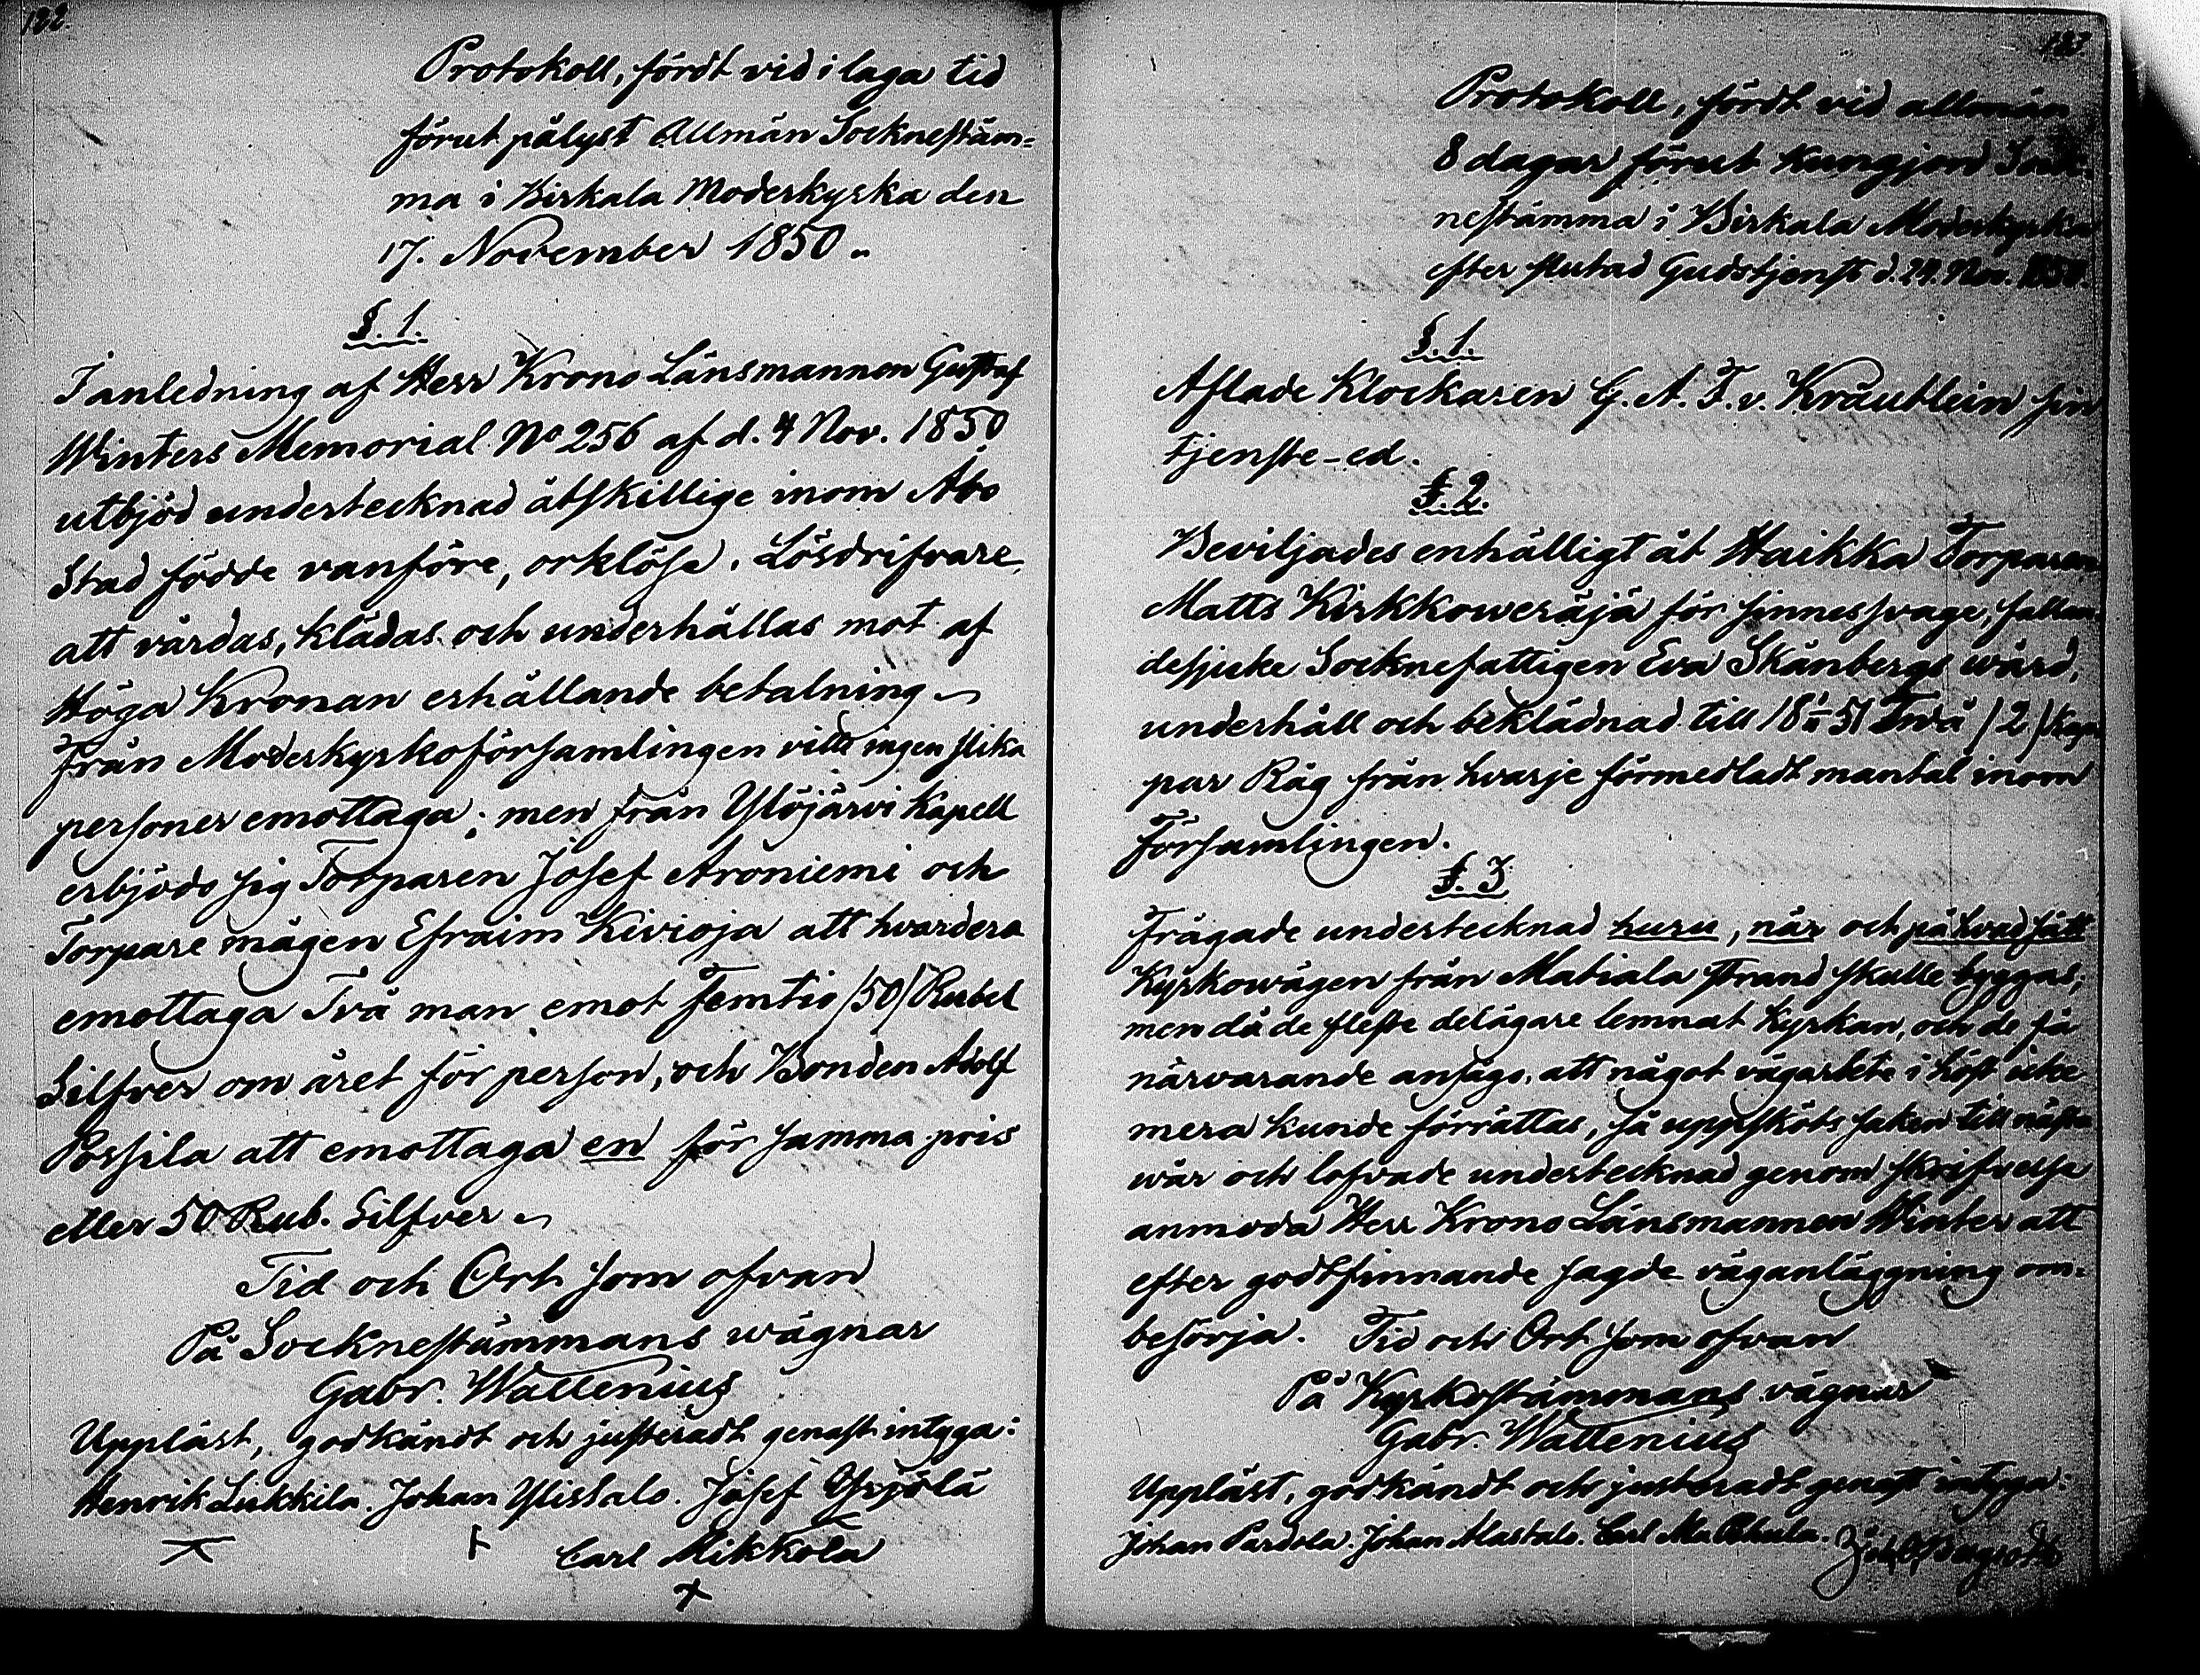 122.
Protokoll, fördt vid i laga tid
förut pålyst Allmän Sockneståm=
ma i Birkala Moderkyrka den
17. November 1850.
§. 1.
I anledning af Herr Krono Länsmannen Gustaf
Winters Memorial No 256 af d. 4 Nov. 1850
utbjöd undertecknad åtskillige inom Åbo
Stad födde vanföre, orklöse, Lösdrifvare,
att vårdas, klädas och underhållas mot af
Höga Kronan erhållande betalning.
Från Moderkyrkoförsamlingen ville ingen slika
personer emottaga; men från Ylöjärvi Kapell
erbjödo sig Torparen Josef Aroniemi och
Torpare mågen Efraim Kivioja att hvardera
emottaga Två man emot Femtio /50/ Rubel
Silfver om året för person, och Bonden Adolf
Possila att emottaga en för samma pris
eller 50 Rub. Silfver.
Tid och Ort som ofvan
På Socknestämmans wägnar
Gabr. Wallenius
Uppläst, godkändt och justeradt genast intyga:
Henrik Liukkila. Johan Ylistalo. Josef Yrjölä
Carl Mikkola
123
Protokoll, fördt vid allmän
8 dagar förut kungjord Sock=
nestämma i Birkala Moderkyrka
efter slutad Gudstjenst d. 24. Nov. 1850.
§. 1.
Aflade Klockaren G. A. F. v. Kräutlein sin
tjenste-ed.
§. 2.
Beviljades enhälligt åt Haikka Torparen
Matts Kirkkoweräjä för sinnessvage, fallan
desjuke Socknefattigen Eva Skånbergs wård,
underhåll och beklädnad till 18 1/11 51 Två /2/ kap
par Råg från hvarje förmedladt mantal inom
Församlingen.
§. 3
Frågade undertecknad huru, når och på hvad sätt
Kyrkowägen från Matiala strand skulle byggas;
men då de fleste delägare lemnat kyrkan, och de få
närvarande ansågo, att något vägarbete i höst icke
mera kunde förrättas, så uppsköts saken till nästa
wår och lofvade undertecknad genom skrifvelse
anmoda Herr Krono Länsmannen Winter att
efter godtfinnande sagde väganläggning om=
besörja. Tid och Ort som ofvan
På Kyrkostämmans vägnar
Gabr. Wallenius
Uppläst, godkändt och justeradt genast intyga:
Johan Pardola. Johan Alastalo. Carl